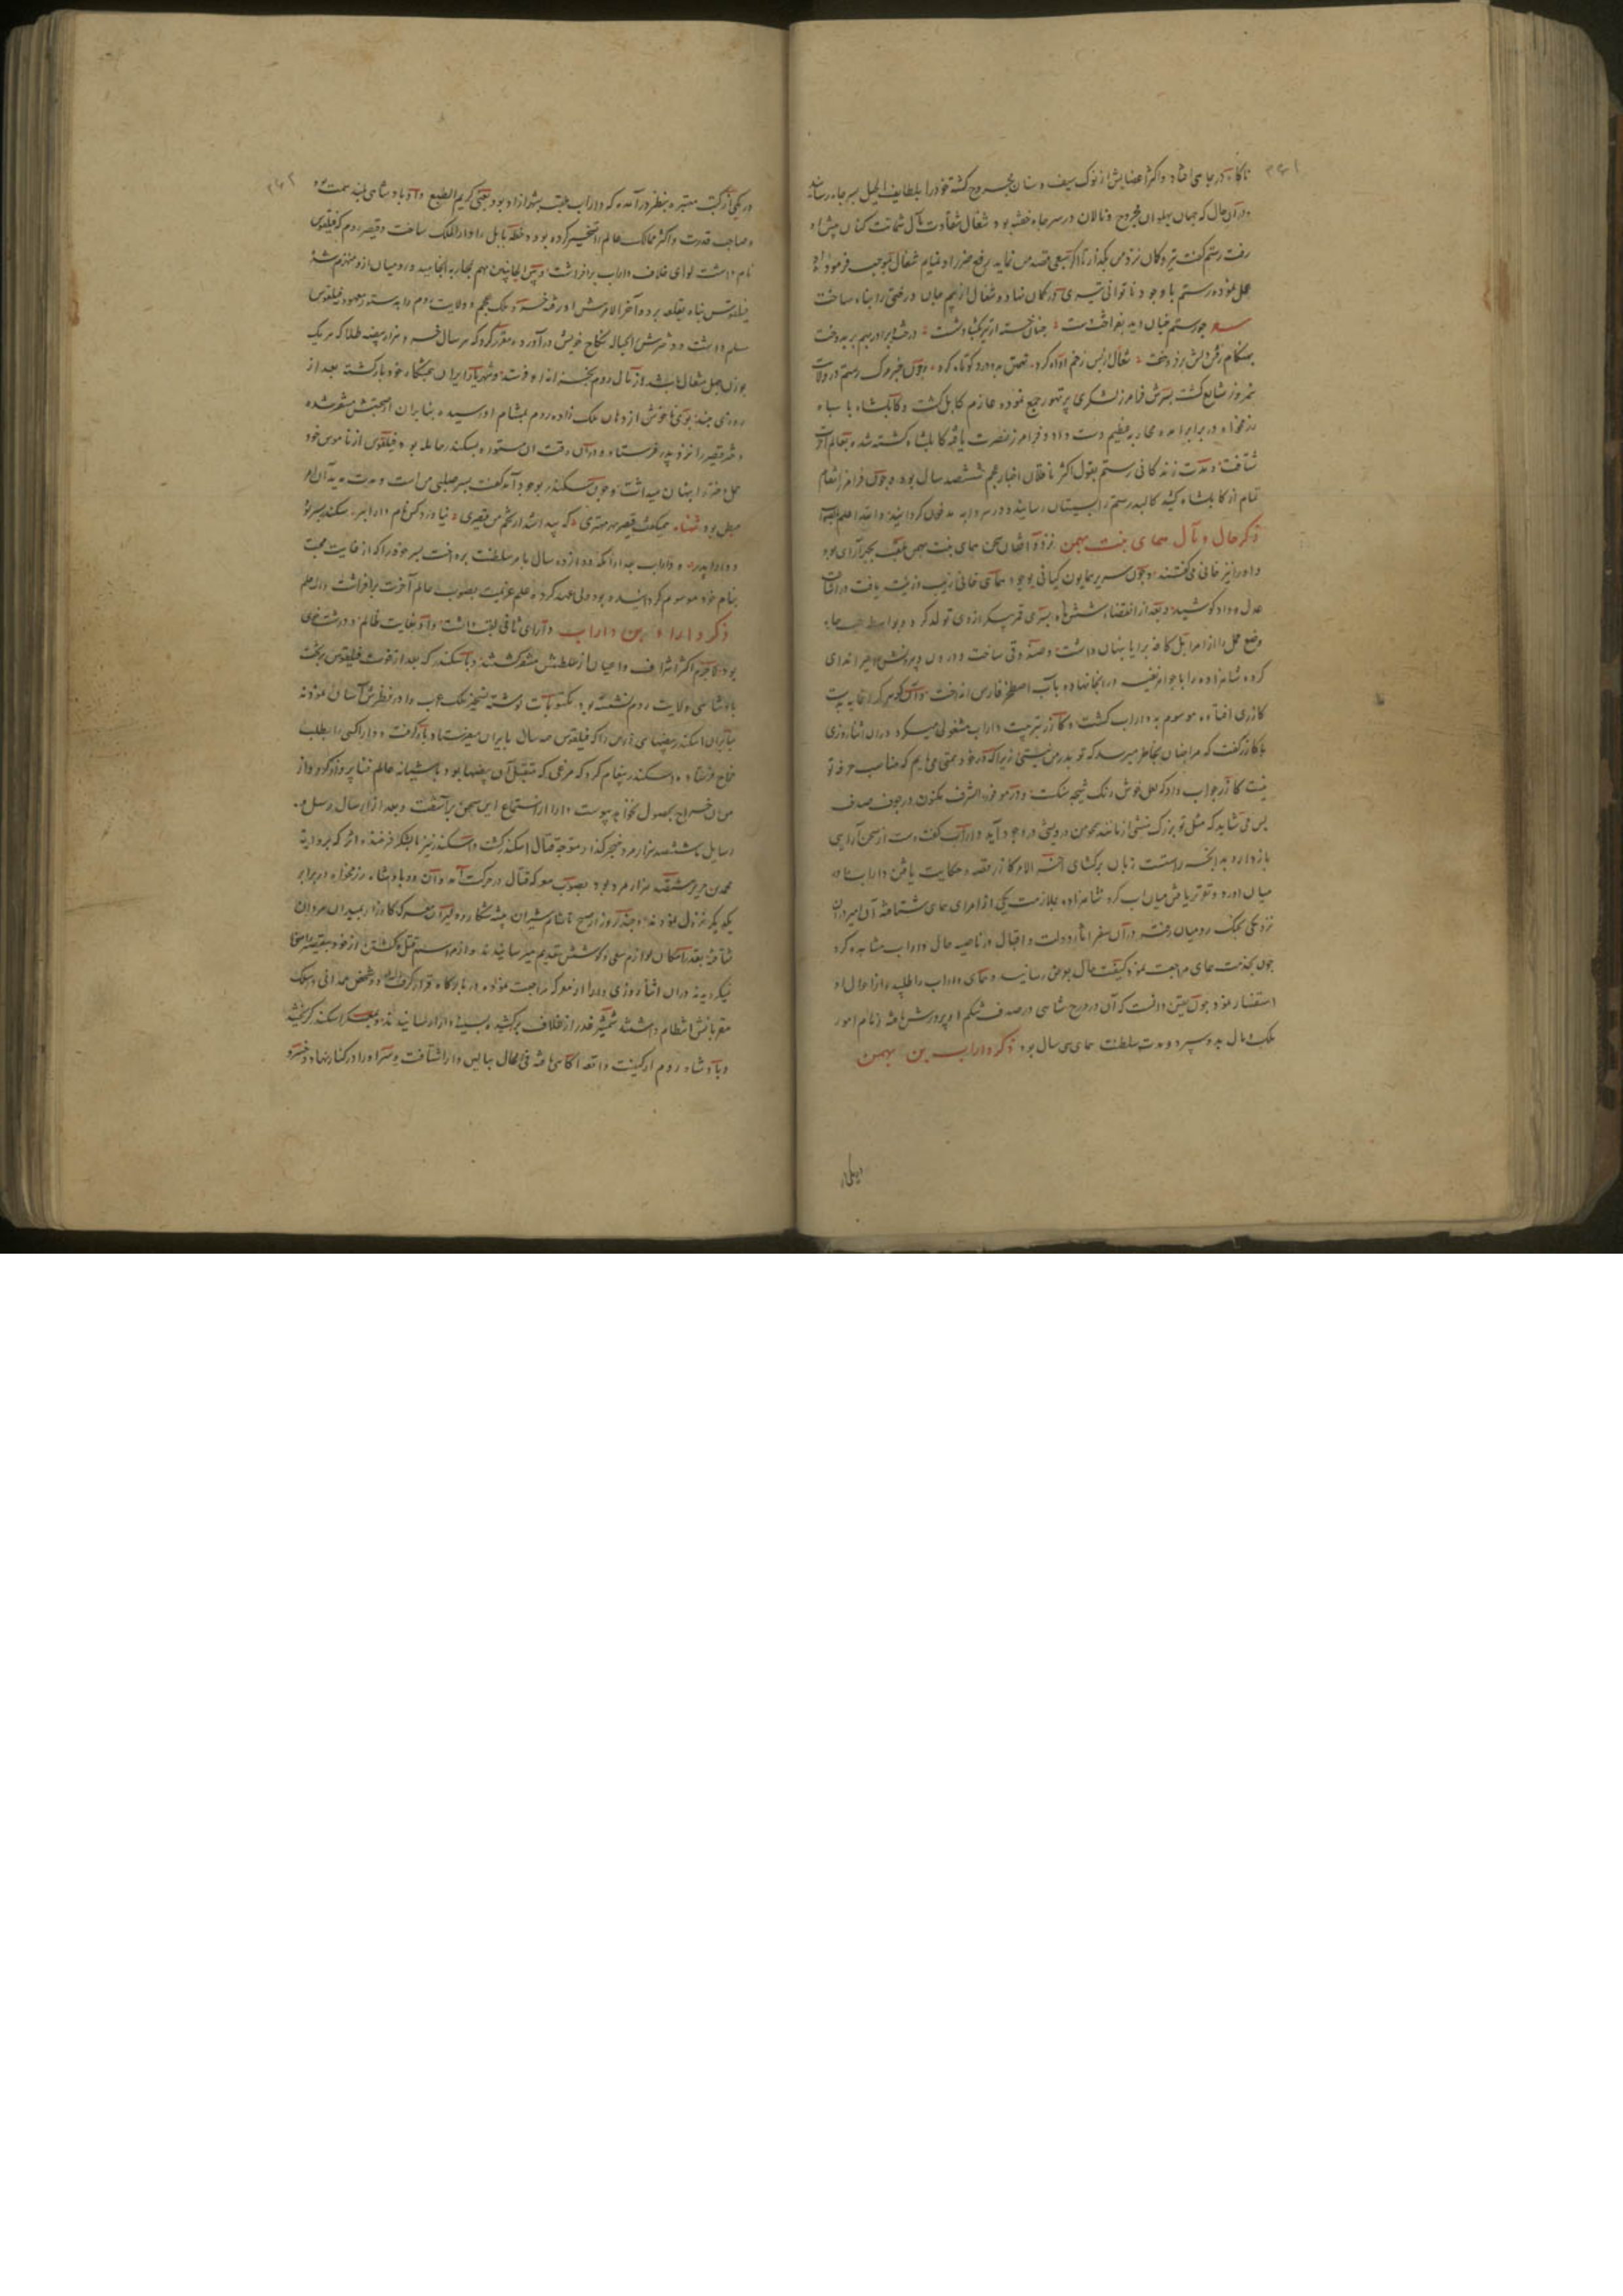 ناکاه در چاهی افتاد و اکثر اعضایش از نوک سیف و سنان مجروح کشته خود را بلطایف الحیل بسر چاه رسانید
در آن حال که جهان پهلوان مجروح و نالان در سر چاه خفته بود شغال شقاوت مآل شماتت کنان پیش او
رفت رستم کفت تیر و کمان نزد من بگذار تا اگر سبعی قصد من نماید رفع ضرر او نمایم شغال بموجب فرموده
عمل نموده رستم با وجود ناتوانی تیری در کمان نهاده شغال از بیم جان درختی را پناه ساخت
چو رستم چنان دید بفراخت دست چنان خسته از تیر بکشاد شست درخت و برادر بهم بر بدوخت
بهنکام رفتن دلش بر فروخت شغال از پس زخم او آه کرد تهمتن برو درد کوتاه کرد و چون خبر مرک رستم در ولایت
نیمروز شایع کشت پسرش فرامرز لشکری پر تهور جمع نموده عازم کابل کشت و کابلشاه با سپاه
رزمخواه در برابر آمده محاربه عظیم دست داد و فرامرز نصرت یافته کابلشاه کشته شده بعالم آخرت
شتافت و مدت زندکانی رستم بقول اکثر ناقلان اخبار عجم ششصد سال بود و چون فرامرز انتقام
تمام از کابلشاه کشید کالبد رستم را بسیستان رسانیده در سردابه مدفون کردانید والله اعلم بالصواب
ذکر حال و مآل همای بنت بهمن نزد آفتان سخن همای بنت بهمن ملقب بچهرآزاد بود
و او را نیز خانی میکفتند و چون سریر همایون کیانی بوجود همای خانی زیب و زینت یافت در افشای
عدل و داد کوشید و بعد از انقضاء شش ماه پسری قمر پیکر از وی تولد کرد و بواسطه حب جاه
وضع حمل را از امرا بل کافه برایا پنهان داشت و صندوقی ساخت و درون و بیرونش را قیر اندای
کرده شاهزاده را با جواهر نفیسه در آنجا نهاده بآب اصطخر فارس انداخت و آن کوهر بدست
کازری افتاده موسوم به داراب کشت و کازر بتربیت داراب مشغولی میکرد در آن اثنا روزی
با کازر کفت که مرا چنان بخاطر میرسد که تو پدر من نیستی زیرا که در خود همتی می یابم که مناسب حرفه تو
نیست کازر جواب داد که لعل خوش رنک نتیجه سنک و در موفور الشرف مکنون در جوف صدف
پس می شاید که مثل تو بزرک منشی از مانند من درویشی در وجود آید داراب کفت دست از سخن آرایی
باز دار و بدانچه راستست زبان برکشای آخر الامر کازر قصه و حکایت یافتن داراب را در
میان آورد و تقریر یافتن میان آب کرد شاهزاده بملازمت یکی از امرای همای شتافته آن امیر در آن
نزدیکی بجنک رومیان رفته در آن سفر آثار دولت و اقبال در ناصیه حال داراب مشاهده کرد
چون بخدمت همای مراجعت نمود کیفیت حال بعرض رسانید و همای داراب را طلبیده از احوال او
استفسار نمود چون یقین دانست که آن در درج شاهی در صدف شکم او پرورش یافته زمام امور
ملک و مال بدو سپرد و مدت سلطنت همای سی سال بود ذکر داراب بن بهمن
در یکی از کتب معتبره بنظر در آمده که داراب ملقب بشهرازاد بود یعنی کریم الطبع و او پادشاهی بلند همت بود
و صاحب قدرت و اکثر ممالک عالم را تسخیر کرده بود و خطه بابل را دار الملک ساخت و قیصر روم که فیلقوس
نام داشت لوای خلاف داراب برافروشت و بین الجانبین مهم بمحاربه انجامید و رومیان ازو منهزم شد
فیلقوس پناه بقلعه برده آخر الامر ملک عجم و ولایت روم را بدستور معهود فیلقوس
مسلم داشت و دخترش را بحباله نکاح خویش در آورده مقرر کرد که هر سال خمسه و هزار بیضه طلا که هر یک
بوزن چهل مثقال باشد از مال روم بخزانه او فرستد و شهریار ایران بتختکاه خود بازکشته بعد از
روزی چند بوی ناخوش از دهان ملک زاده روم بمشام او رسیده بنابر آن از صحبتش متنفر شده
دختر قیصر را نزد پدر فرستاد و در آن وقت آن مستوره بسکندر حامله بود و فیلقوس از ناموس خود
حمل دختر را پنهان میداشت و چون سکندر بوجود آمد کفت پسر صلبی من است و مدت مدید آن امر
مبطن بود نیاورد کس نام دارا ببر سکندر پسر بود
و دارا پدر و داراب بعد از آنکه دوازده سال بامر سلطنت پرداخت پسر خود را که از غایت محبت
بنام خود موسوم کردانیده بود ولی عهد کرد و علم عزیمت بصوب عالم آخرت برافراشت والله اعلم
ذکر دارا بن داراب دارای ثانی لقب داشت و او بغایت ظالم و درشت خوی
بود لاجرم اکثر اشراف و اعیان از سلطنتش متنفر کشتند و با سکندر که بعد از فوت فیلقوس بر تخت
پادشاهی ولایت روم نشسته بود مکتوبات نوشته تسخیر ملک عجم را در نظرش آسان نمودند
بنابر آن اسکندر بیضهای زرین را که فیلقوس هر سال بایران میفرستاد باز کرفت و دارا کس را بطلب
خراج فرستاده اسکندر پیغام کرد که مرغی که متقبل آن بیضها بود باشیانه عالم فنا پرواز کرد و از
من آن خراج بحصول نخواهد پیوست دارا از استماع این سخن برآشفت و بعد از ارسال رسل و
رسایل با ششصد هزار مرد خنجر کذار متوجه قتال اسکندر کشت و اسکندر نیز با لشکر فرخنده اثر که بروایت
محمد بن جریر هشتصد هزار مرد بود بصوب معرکه قتال در حرکت آمد و آن دو پادشاه رزمخواه در برابر
یکدیکر نزول نمودند و چند روز از صبح تا شام شیران بیشه شکار و دلیران معرکه کارزار بمیدان مردان
شتافته بقدر امکان لوازم سعی و کوشش بتقدیم میرسانیدند و از مراسم قتل و کشتن از خود بتقصیر راضی
نمیکردیدند در آن اثنا روزی دارا از معرکه مراجعت نموده در بارکاه قرار کرفت و دو شخص همدانی در سلک
مقربانش انتظام داشتند شمشیر غدر از غلاف برکشیده بسینه دارا رسانیدند و بمعسکر اسکندر کریختند
و پادشاه روم از کیفیت واقعه آکاهی یافته فی الحال ببالین دارا شتافت و سر او را در کنار نهاد